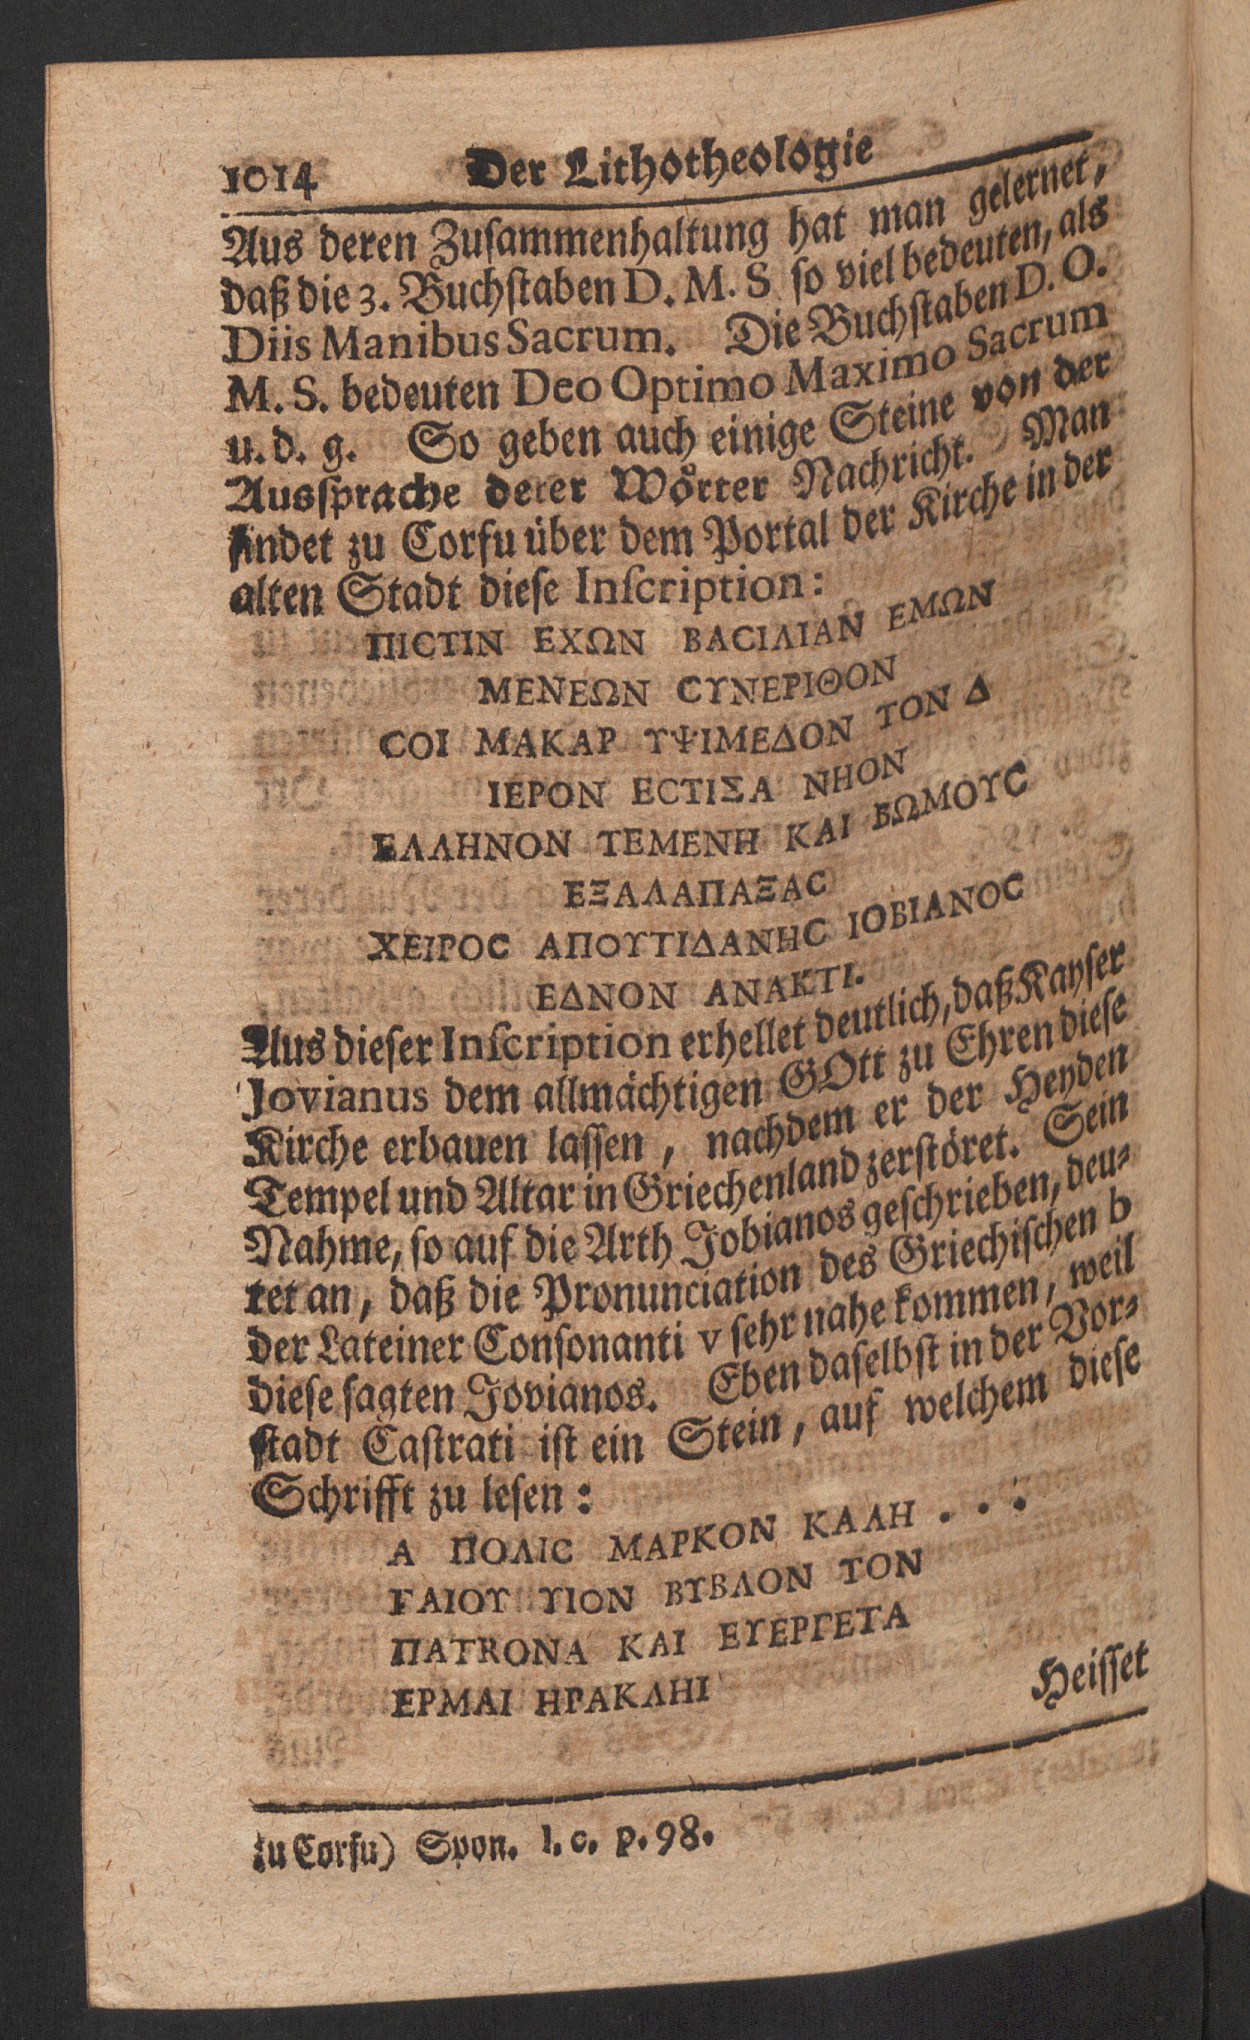 1014 Der Lithotheologie
Aus deren Zusammenhaltung hat man gelernet,
daß die 3. Buchstaben D. M. S so viel bedeuten, als
Diis Manibus Sacrum. Die Buchstaben D. O.
M. S. bedeuten Deo Optimo Maximo Sacrum
u. d. g. So geben auch einige Steine von der
Aussprache derer Wörter Nachricht. Man
findet zu Corfu über dem Portal der Kirche in der
alten Stadt diese Inscription:
ΠΙCΤΙΝ ΕΧΩΝ ΒΑCΙΛΙΑΝ ΕΜΩΝ
ΜΕΝΕΩΝ CΥΝΕΡΙΘΟΝ
CΟΙ ΜΑΚΑΡ ΥΨΙΜΕΔΟΝ ΤΟΝ Δ
ΙΕΡΟΝ ΕCΤΙΣΑ ΝΗΟΝ
ΕΛΛΗΝΟΝ ΤΕΜΕΝΗ ΚΑΙ ΒΩΜΟΥC
ΕΞΑΛΑΠΑΞΑC
ΧΕΙΡΟC ΑΠΟΥΤΙΔΑΝΗC ΙΟΒΙΑΝΟC
ΕΔΝΟΝ ΑΝΑΚΤΙ.
Aus dieser Inscription erhellet deutlich, daß Kayser
Jovianus dem allmächtigen GOtt zu Ehren diese
Kirche erbauen lassen, nachdem er der Heyden
Tempel und Altar in Griechenland zerstöret. Sein
Nahme, so auf die Arth Jobianos geschrieben, deu-
tet an, daß die Pronunciation des Griechischen b
der Lateiner Consonanti v sehr nahe kommen, weil
diese sagten Jovianos. Eben daselbst in der Vor-
stadt Castrati ist ein Stein, auf welchem diese
Schrifft zu lesen:
Α ΠΟΛΙC ΜΑΡΚΟΝ ΚΑΛΗ . . .
FΑΙΟΥ ΥΙΟΝ ΒΥΒΛΟΝ ΤΟΝ
ΠΑΤRΟΝΑ ΚΑΙ ΕΥΕΡΓΕΤΑ
ΕΡΜΑΙ ΗΡΑΚΛΗΙ
Heisset
zu Corfu) Spon. l. c. p. 98.